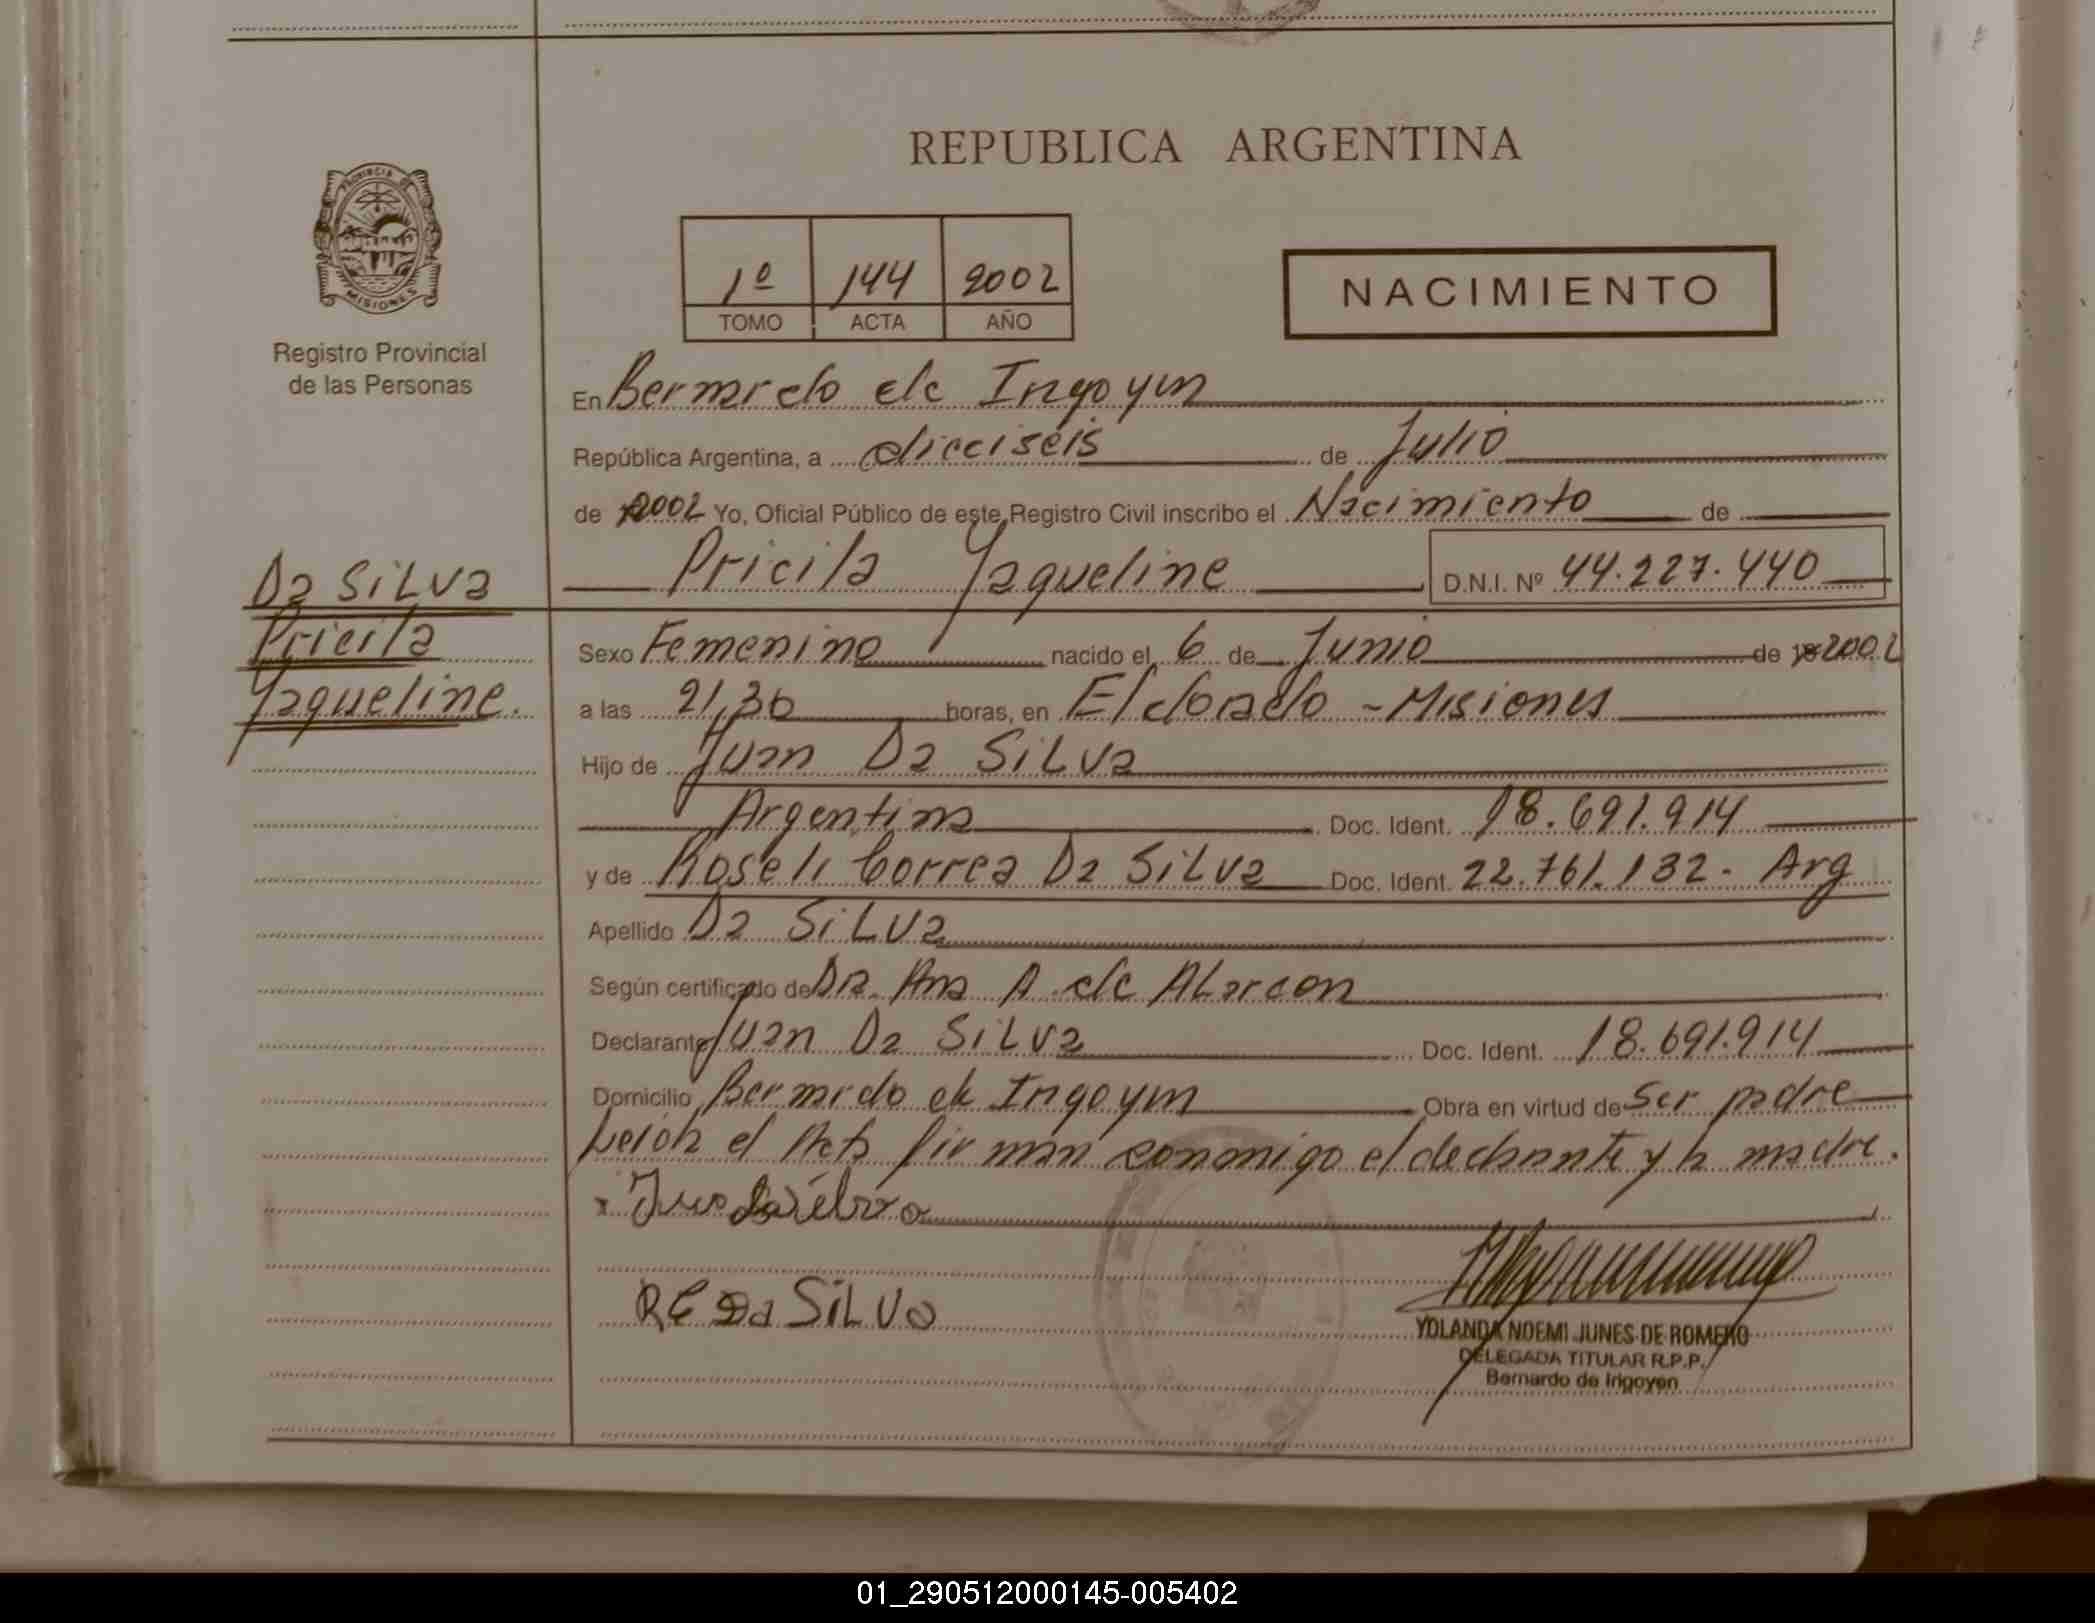 REPUBLICA ARGENTINA
PROVINCIA DE
MISIONES
Registro Provincial
de las Personas
1º 144 2002
TOMO ACTA AÑO
NACIMIENTO
En Bernardo de Irigoyen
República Argentina, a dieciseis de Julio
de 2002 Yo, Oficial Público de este Registro Civil inscribo el Nacimiento de
Pricila Yaqueline D.N.I. Nº 44.227.440
Da SiLVa
Pricila
Yaqueline.
Sexo Femenino nacido el 6 de Junio de 2002
a las 21,30 horas, en Eldorado - Misiones
Hijo de Juan Da SiLVa
Argentina Doc. Ident. 18.691.914
y de Roseli Correa Da SiLVa Doc. Ident. 22.761.132. Arg
Apellido Da SiLVa
Según certificado de Dra. Ana A. de ALarcon
Declarante Juan Da SiLVa Doc. Ident. 18.691.914
Domicilio Bernardo de Irigoyen Obra en virtud de Ser padre
Leida el Acta firman conmigo el declarante y la madre.
RC Da SiLVa
YOLANDA NOEMI JUNES DE ROMERO
DELEGADA TITULAR R.P.P.
Bernardo de Irigoyen
01_290512000145-005402